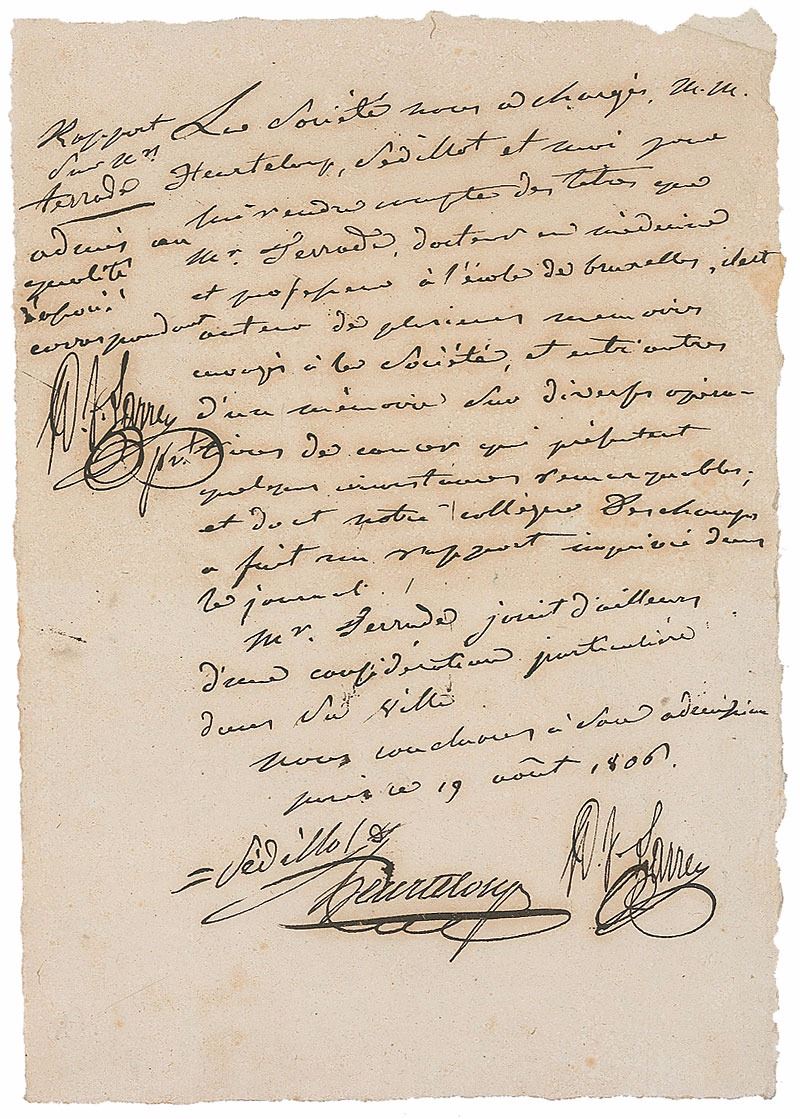 Rapport
Sur Mr
terrade
admis en
qualité
d'associé
correspondant
D. J. Larrey
prt
La Société nous a chargés, M.M.
Heurteloup, Sédillot et moi pour
lui rendre compte des titres que
Mr. Terrade, docteur en médecine
et professeur à l'école de bruxelles, il est
auteur de plusieurs memoires
envoyés à la Société, et entr'autres
d'un mémoire sur diverses opéra-
tions de cancer qui présentent
quelques circonstances remarquables;
et dont notre collègue Deschamps
a fait un rapport imprimé dans
le journal.
Mr. Terrade jouit d'ailleurs
d'une considération particulière
dans sa ville
nous concluons à son admission
paris ce 19 août 1806.
Sédillot
Heurteloup
D. J. Larrey